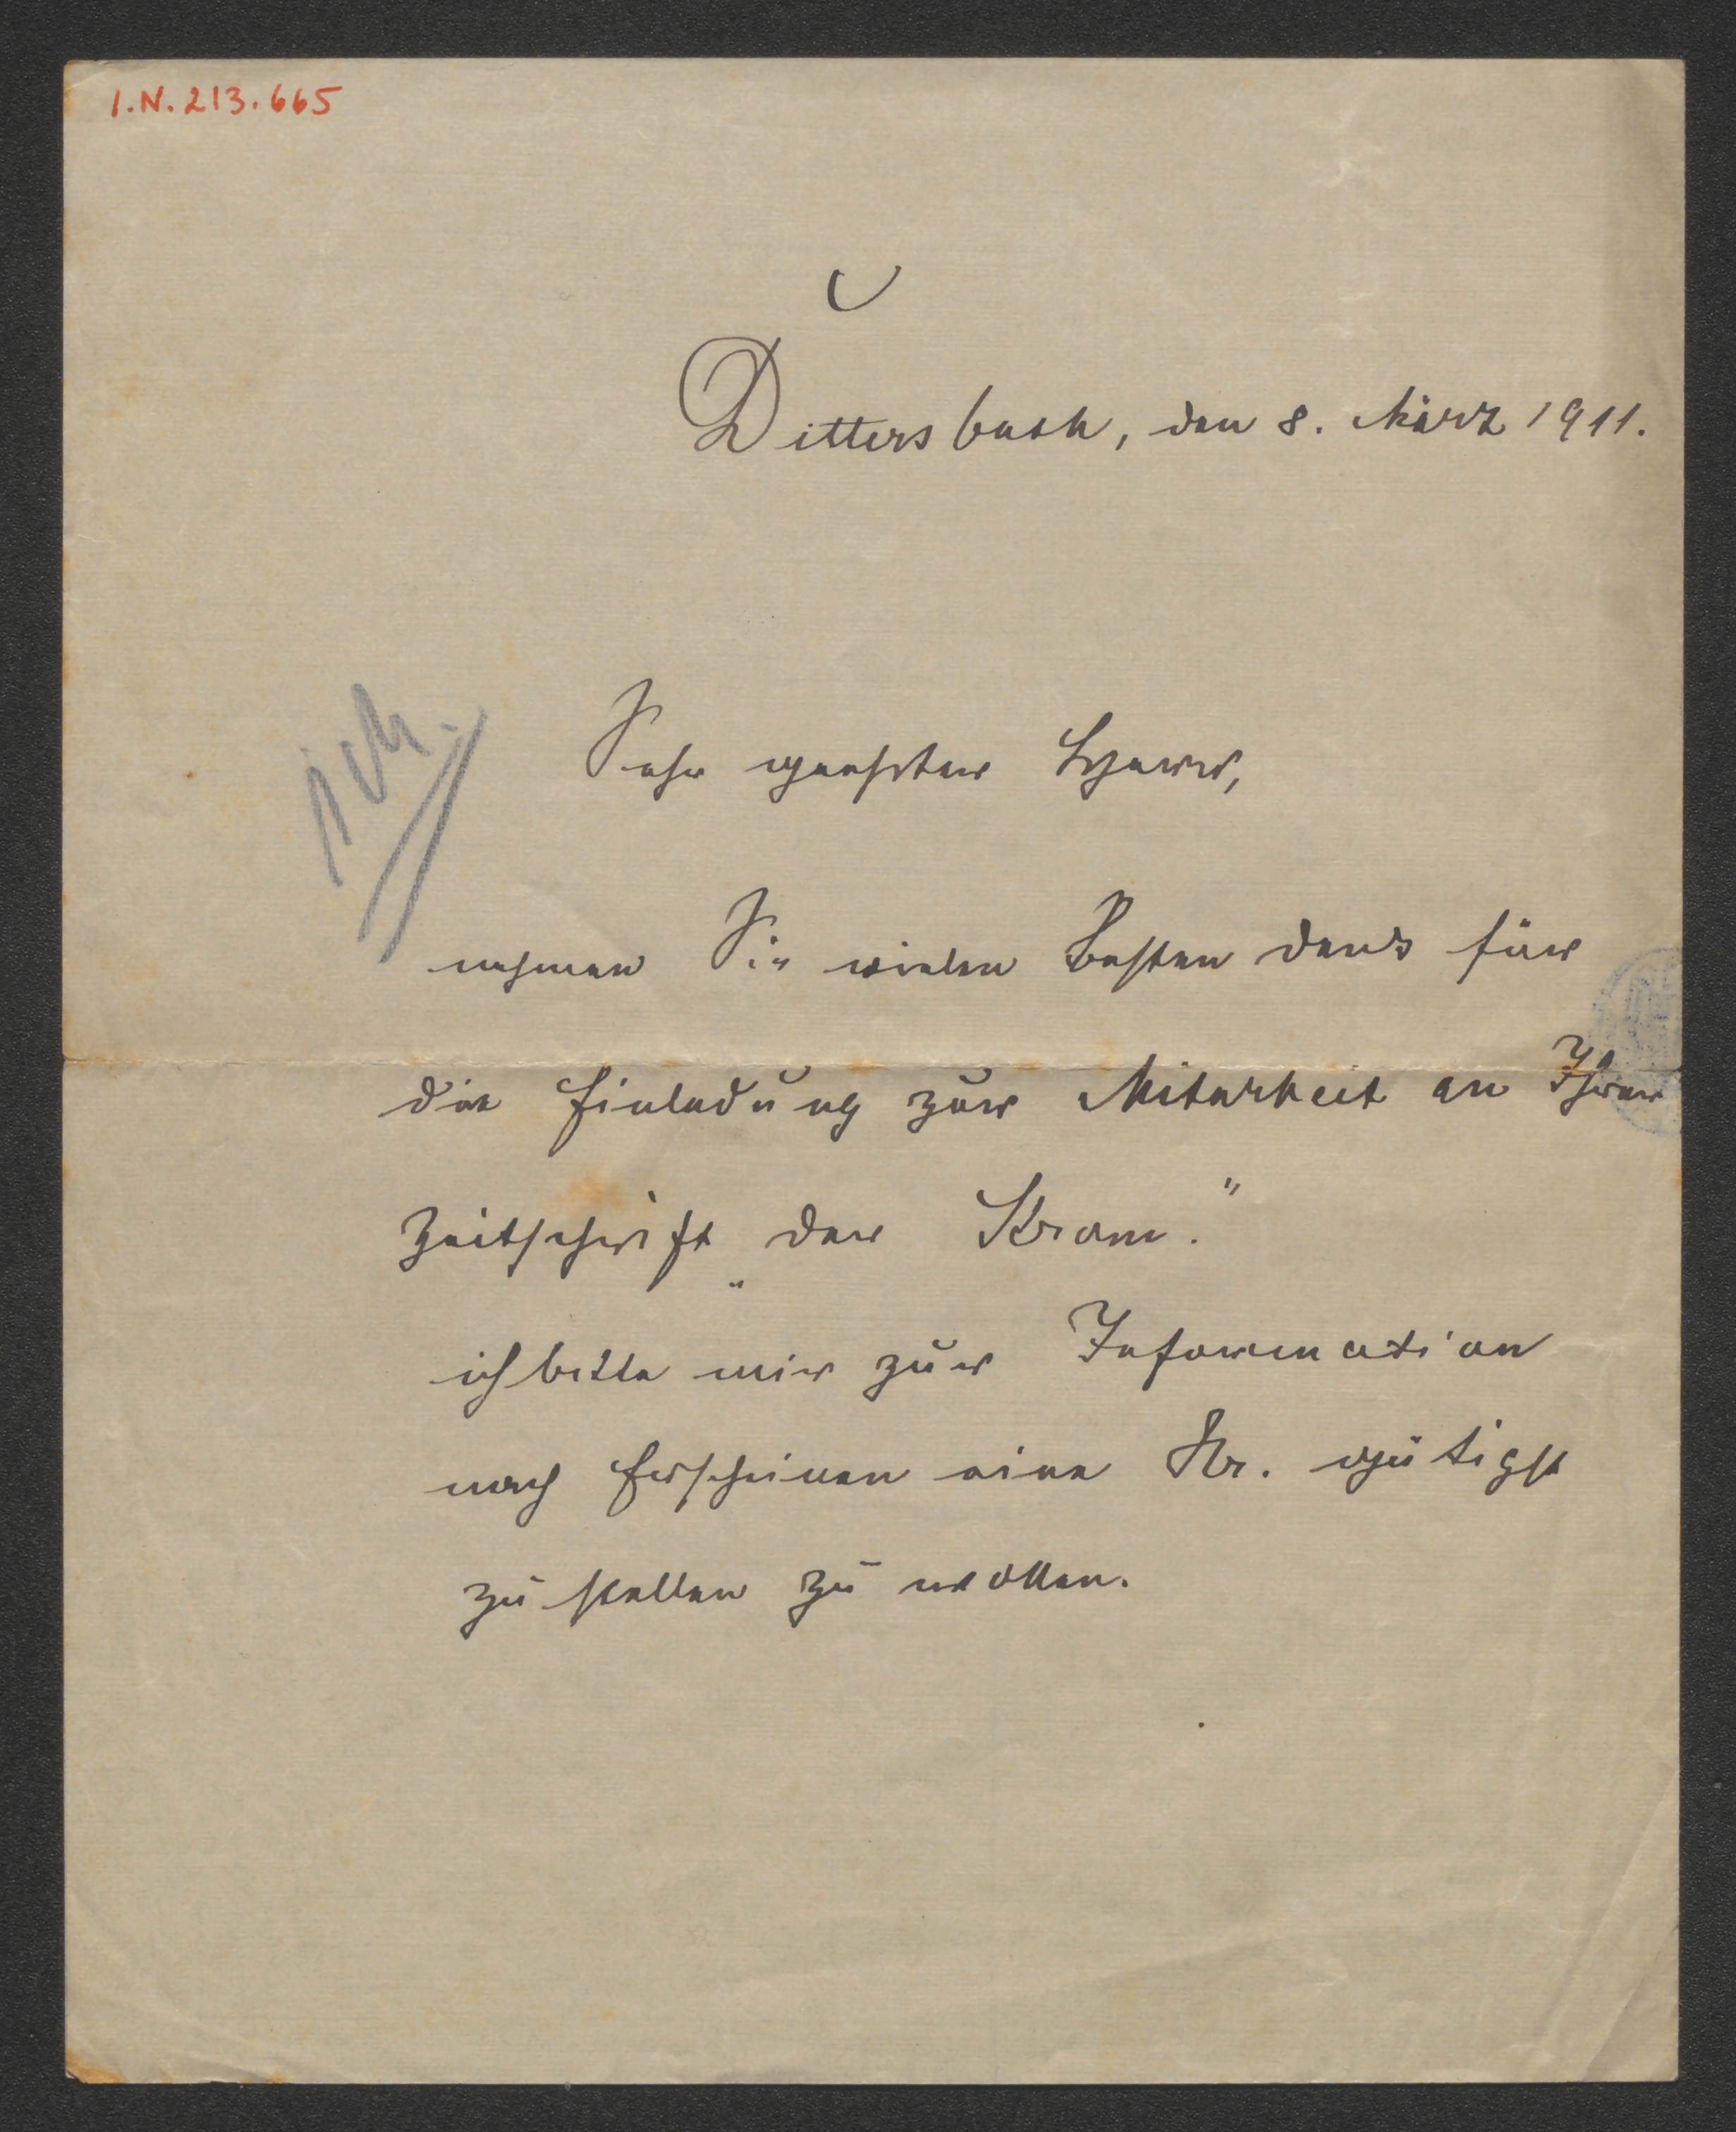 I.N. 213.665
Dittersbach, den 8. März 1911.
Sehr geehrter Herr,
nehmen Sie vielen Besten dank für
die Einladung zur Mitarbeit an Ihrer
Zeitschrift „der Kram."
ich bitte mir zur Information
nach Erscheinen eine Nr. gütigst
zu stellen zu wollen.